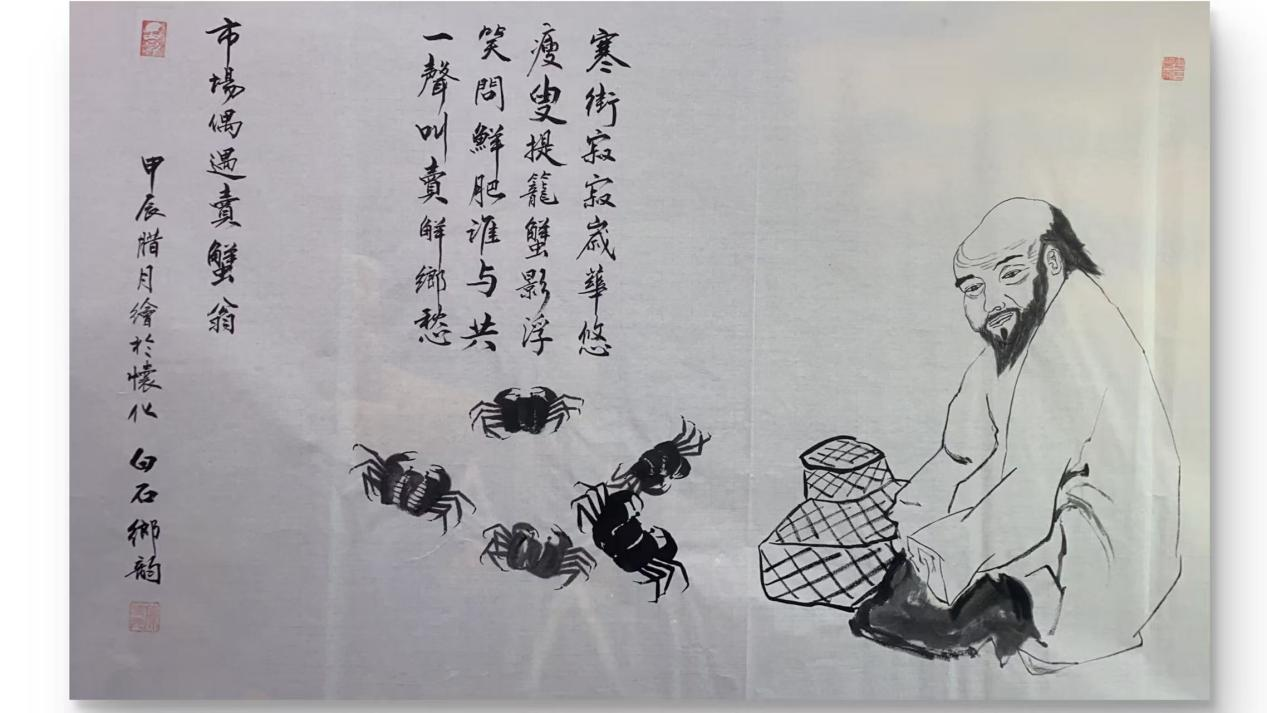 寒街寂寂歲華悠
瘦叟提籠蟹影浮
笑問鮮肥誰与共
一聲叫賣鮮鄉愁
市場偶遇賣蟹翁
甲辰腊月繪於懷化 白石鄉韵